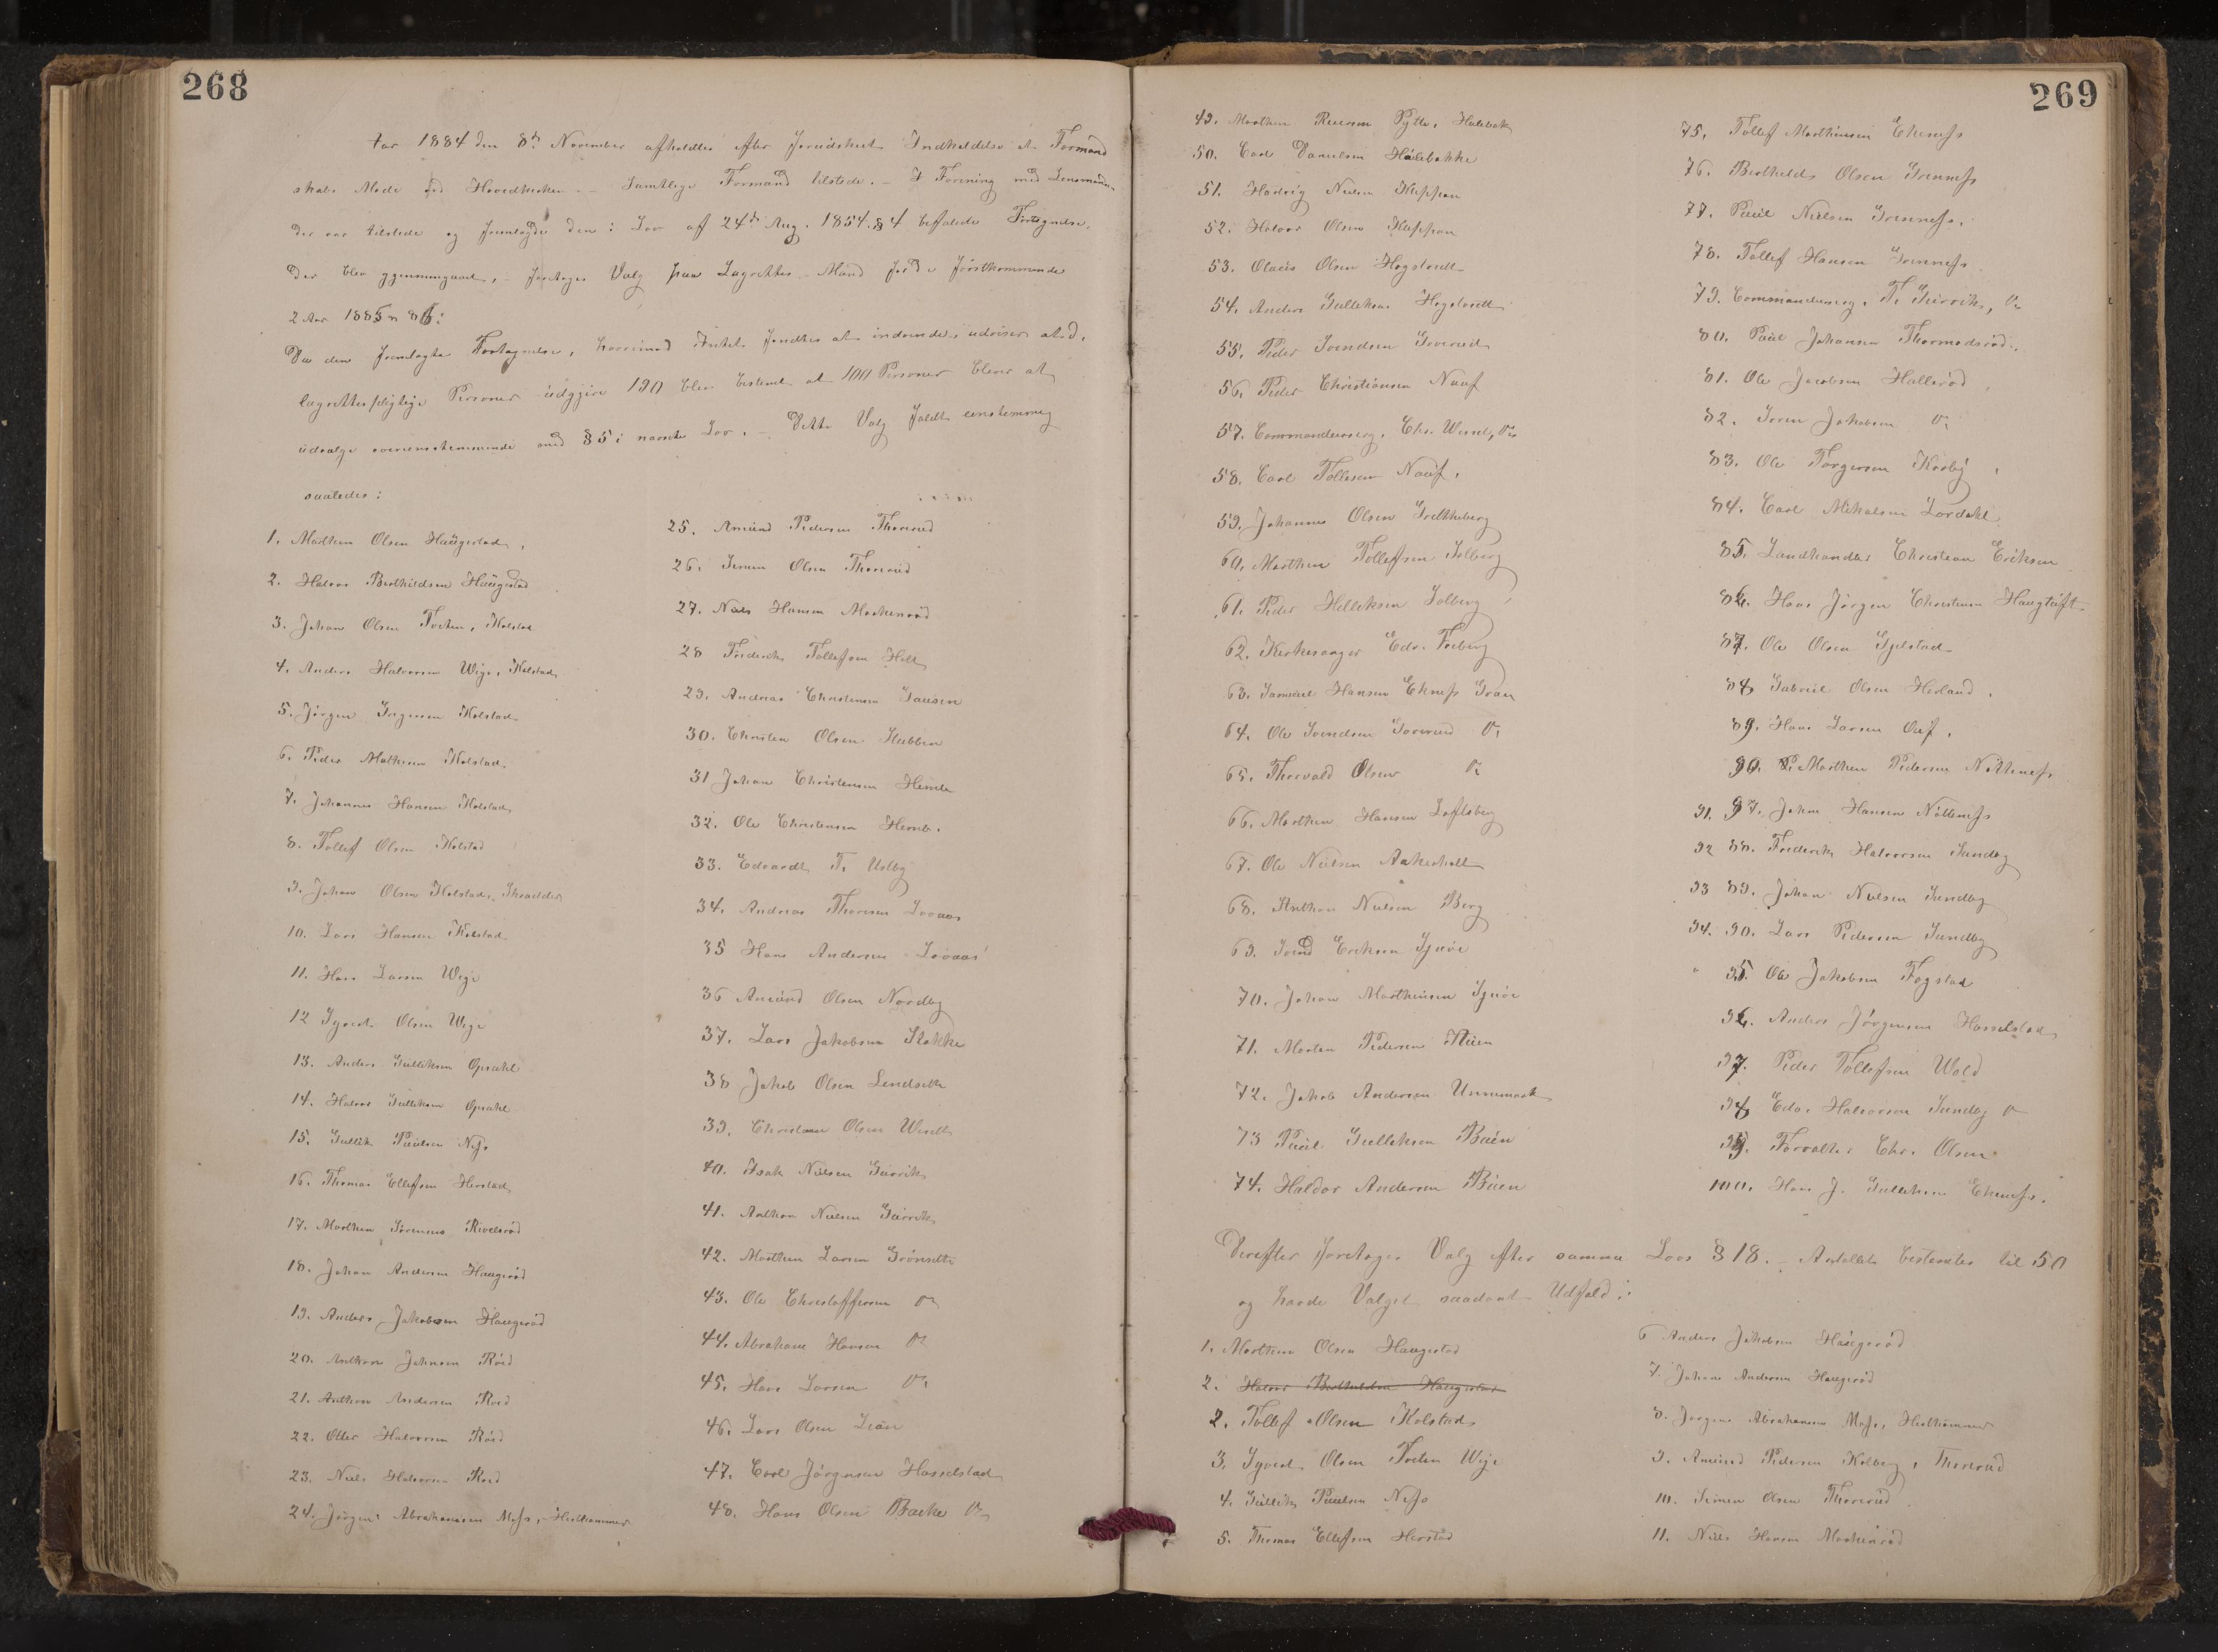 268
Aar 1884 den 8de November afholdtes efter forudskeet Indkaldelse et Formand
skabs Møde ved Hovedkirken. – Samtlige Formænd tilstede. – I Forening med Lensmanden
der var tilstede og fremlagde den i Lov af 24de Aug. 1854 § 4 befalede Fortegnelse,
der blev gjennemgaaet, – foretoges Valg paa Lagrettes-Mænd for de førstkommende
2 Aar 1885 n 86:
Da den fremlagte Fortegnelse, hvorimod Intet fandtes at indvende, udviser at de
lagrettespligtige Personer udgjøre 190 blev bestemt at 100 Personer bliver at
udvælge overensstemmende med § 5 i nævnte Lov. – Dette Valg faldt eenstemmig
saaledes:
1. Marthin Olsen Haugestad,
2. Halvor Berthildsen Haugestad
3. Johan Olsen Foeten, Kolstad
4. Anders Halvorsen Wige, Kolstad
5. Jørgen Gregersen Kolstad
6. Peder Mathisen Kolstad
7. Johannes Hansen Kolstad
8. Tollef Olsen Kolstad
9. Johan Olsen Kolstad, Skrædder
10. Lars Hansen Kolstad
11. Hans Larsen Wege
12 Syvert Olsen Wege
13. Anders Gulliksen Opsahl
14. Halvor Gulliksen Opsahl
15. Gullik Paulsen Næss
16. Thomas Ellefsen Herstad
17. Marthin Sørensen Rivelsrød
18. Johan Andersen Haugerød
19. Anders Jakobsen Haugerød
20. Anthon Johnsen Røed
21. Anthon Andersen Røed
22. Otter Halvorsen Røed
23. Niels Halvorsen Røed
24. Jørgen Abrahamsen Moss, Hesthammer
25. Amund Pedersen Thorerud
26. Simen Olsen Thorerud
27. Niels Hansen Morkenrød
28 Frederik Tollefsen Holt
29. Andreas Christensen Gausen
30. Christen Olsen Stubben
31 Johan Christensen Hemb
32. Ole Christensen Hemb.
33. Edvardt T. Ulsby
34. Andreas Thoresen Lovaas
35 Hans Andersen Lovaas
36 Amund Olsen Nordby
37. Lars Jakobsen Stokke
38 Jakob Olsen Lindseth
39. Christian Olsen Weseth
40. Isak Nielsen Gurrik
41. Anthon Nielsen Gurrik
42. Marthin Larsen Grønseth
43. Ole Christoffersen do
44. Abraham Hansen do
45. Hans Larsen do
46. Lars Olsen Lian
47. Carl Jørgensen Hasselstad
48. Hans Olsen Bache do
269
49. Marthin Reiersen Pytte, Halebak
50. Carl Danielsen Halebakke
51. Hartvig Nielsen Keppan
52. Halvor Olsen Keppan
53. Olaus Olsen Hogstvedt
54. Anders Gulliksen Hogstvedt
55. Peder Svendsen Goverud
56. Peder Christiansen Nauf
57. Commanderserg. Chr. Wessel, do
58. Carl Tollesen Nauf.
59. Johannes Olsen Grettheberg
60. Marthin Tollefsen Solberg
61. Peder Helleksen Solberg
62. Kirkesanger Edv. Freberg
63. Samuel Hansen Ekness Gran
64. Ole Svendsen Goverud do
65. Thorvald Olsen do
66. Marthin Hansen Loftsberg
67. Ole Nielsen Aakerholt
68. Anthon Nielsen Berg
69. Svend Eriksen Gjuve
70. Johan Marthinsen Gjuve
71. Morten Pedersen Huen
72. Jakob Andersen Unnemark
73 Paul Gulleksen Buen
74. Haldor Andersen Buen
75. Tollef Marthinsen Ekeness
76. Berthild Olsen Grenness
77. Paul Nielsen Grenness.
78. Tollef Hansen Grenness
79. Commandeurserg. T. Gurrik, do
80. Paul Johansen Thormodsrød.
81. Ole Jacobsen Hallerød
82. Søren Jakobsen do
83. Ole Torgersen Kirkeby
84. Carl Mikalsen Lørdahl
85. Landhandler Christian Eriksen
86. Hans Jørgen Christensen Haugtuft
87. Ole Olsen Gjelstad
88 Gabriel Olsen Herland.
89. Hans Larsen Ouf.
90. Marthin Pedersen Nøttenæss
91. 87. Johan Hansen Nøttenæss
92 88. Frederik Halvorsen Sundby
93 89. Johan Nielsen Sundby
94. 90. Lars Pedersen Sundby
95 Ole Jakobsen Fogstad
96. Anders Jørgensen Hasselstad
97. Peder Tollefsen Wold
98 Edv. Halvorsen Sundby do
99. Forvalter Chr. Olsen
100. Hans J. Gulleksen Ekeness.
Derefter foretoges Valg efter samme Lovs § 18. – Antallet bestemtes til 50
og havde Valget saadant Udfald:
1. Marthin Olsen Haugestad
2. Halvor Berthildsen Haugestad
2. Tollef Olsen Kolstad
3. Syvert Olsen Foeten Wege
4. Gullik Paulsen Næss
5. Thomas Ellefsen Herstad
6 Anders Jakobsen Haugerød
7. Johan Andersen Haugerød
8. Jørgen Abrahamsen Moss, Hesthammer
9. Amund Pedersen Kolberg, Thorerud
10. Simen Olsen Thorerud
11. Niels Hansen Morkenrød